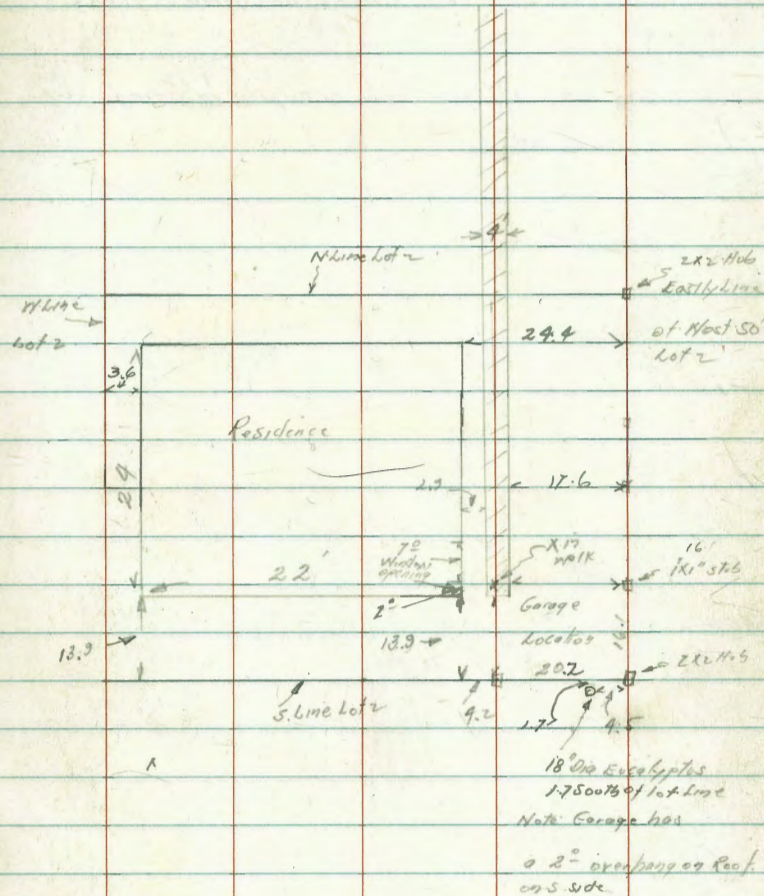 4'
N. Line Lot 2
2x2 Hub
Eastly Line
of West 50'
Lot 2
W Line
Lot 2
24.4
3.6
Residence
24
2.9
17.6
7º
Window
opening
X in
walk
16'
1x1" stub
22'
2º
Garage
Location
13.9
13.9
20.2
2x2 Hub
S. Line Lot 2
4.2
1.7
4.5
18" Dia Eucalyptos
1.7 South of lot Line
Note Garage has
a 2º overhang on Roof
on S. side